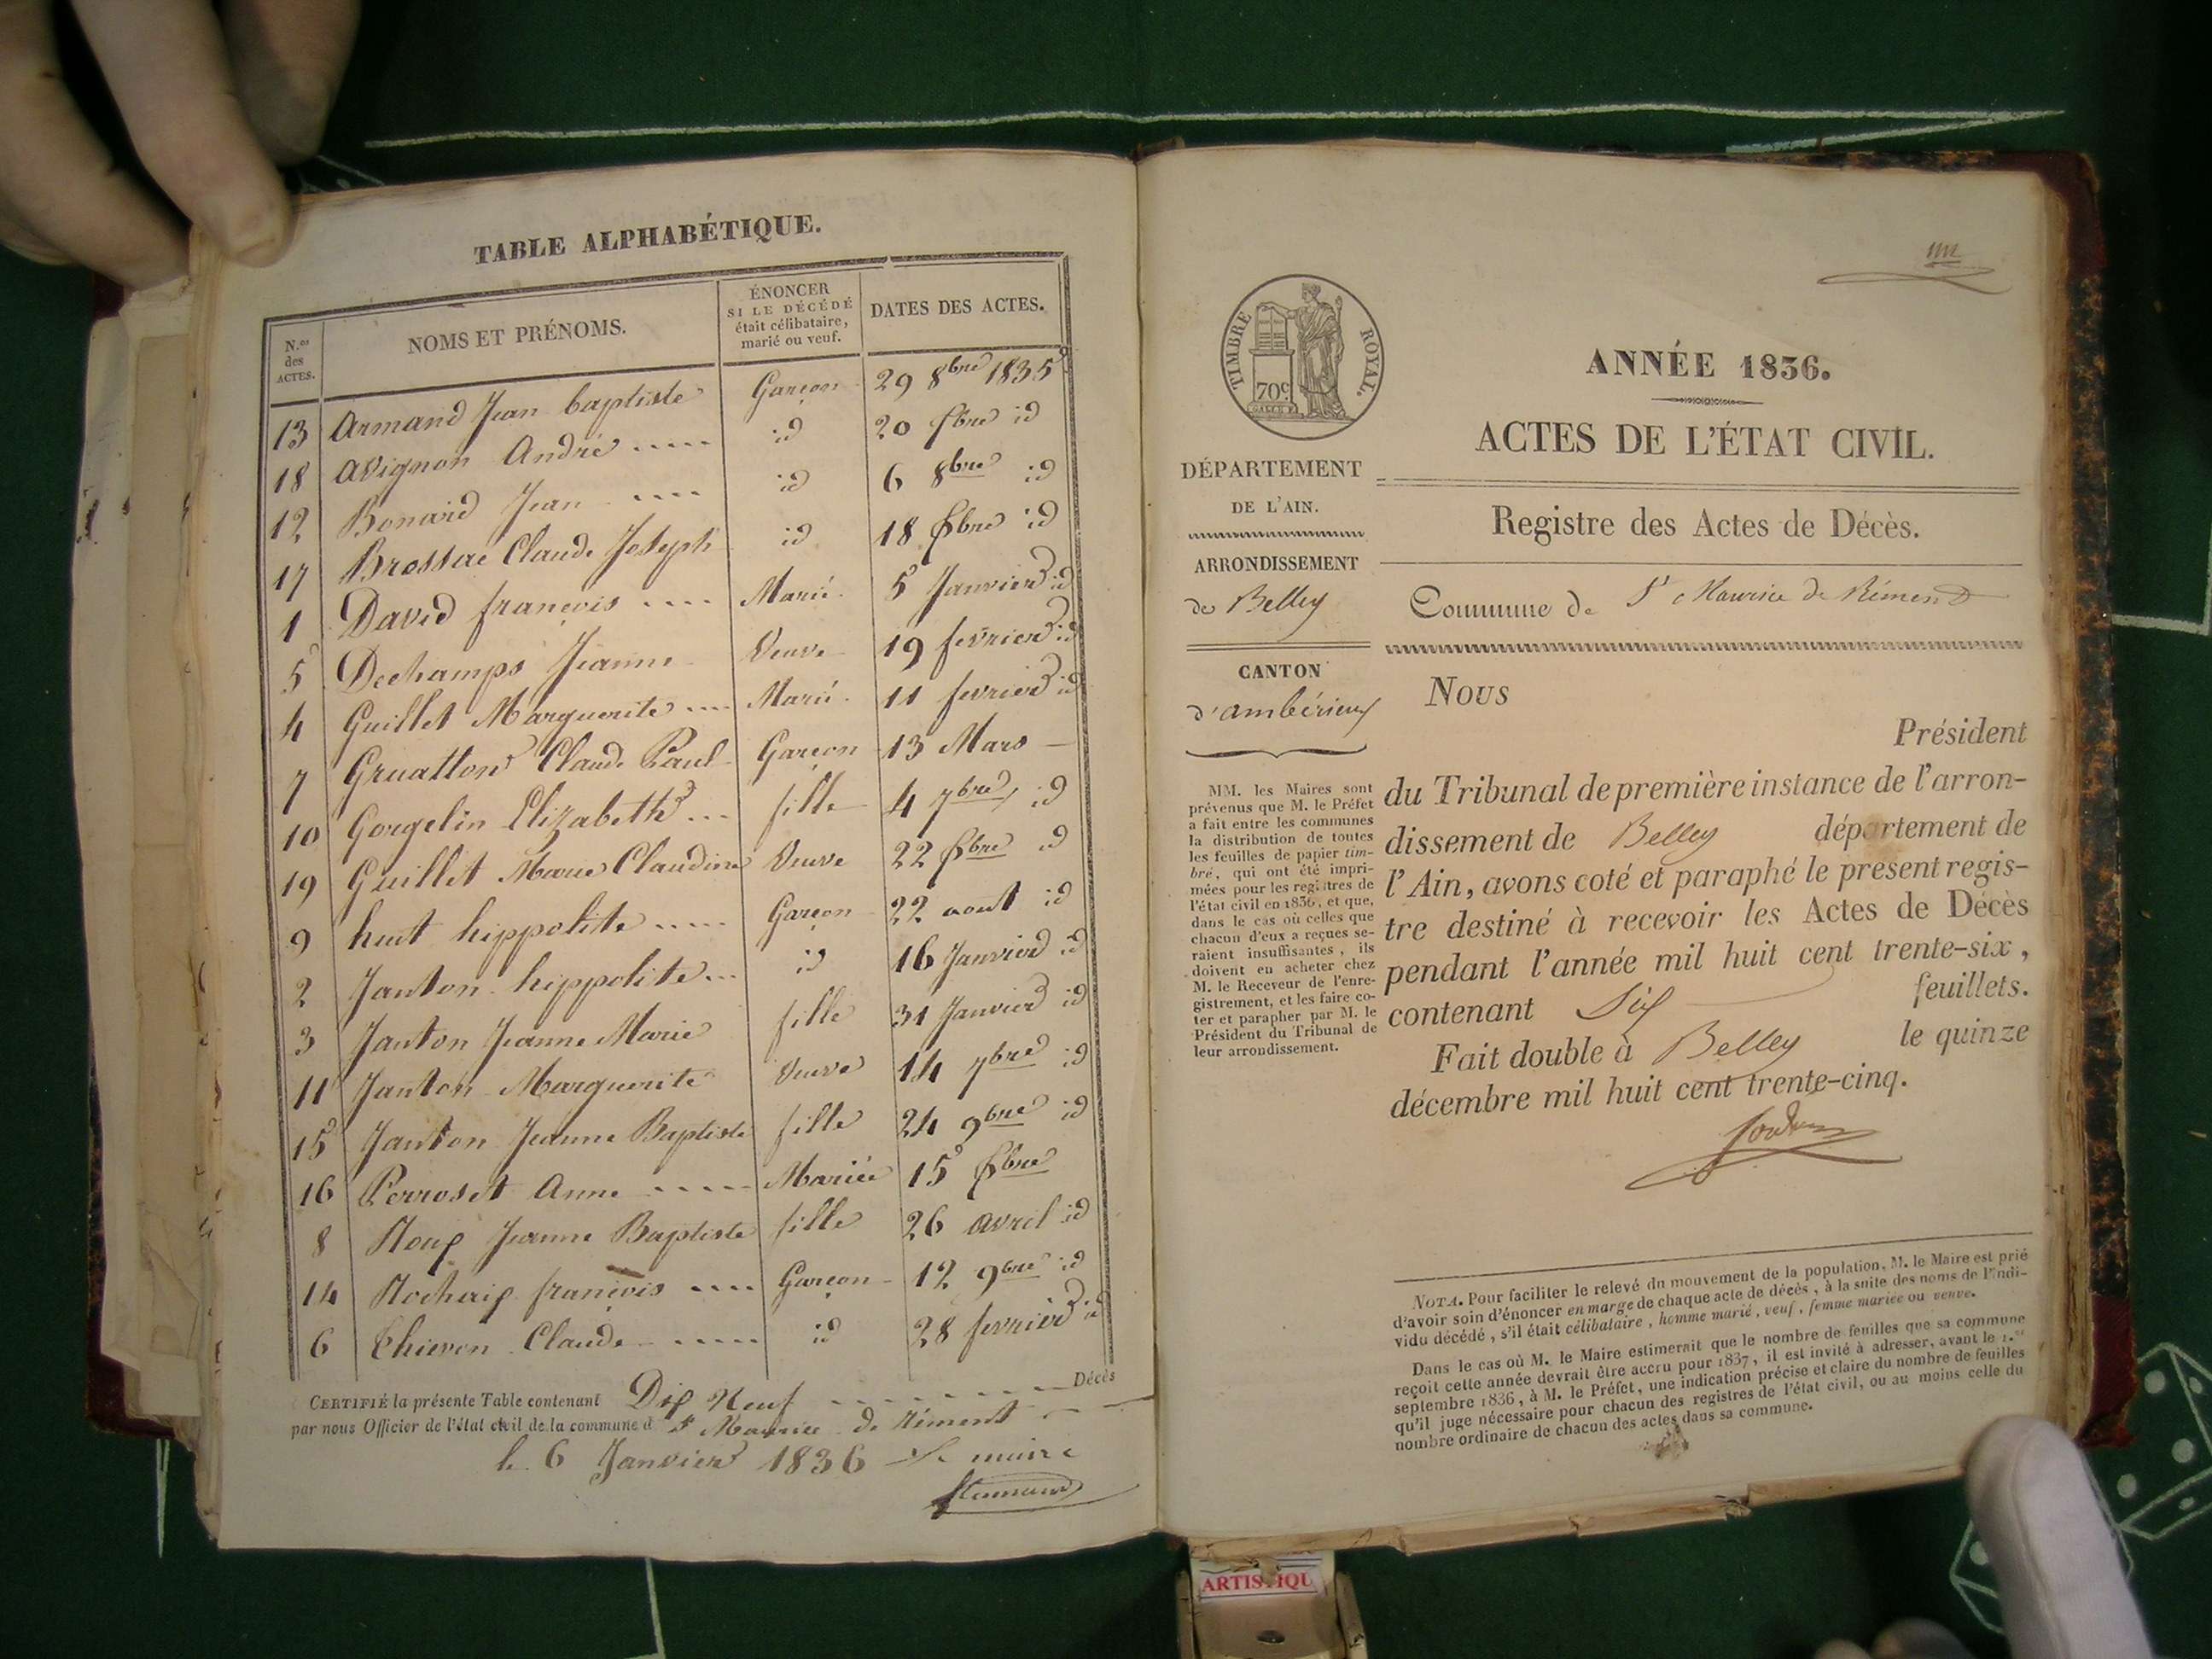 TABLE ALPHABÉTIQUE.
N.os des ACTES.
NOMS ET PRÉNOMS.
ÉNONCER
SI LE DÉCÉDÉ
était célibataire,
marié ou veuf.
DATES DES ACTES.
13 Armand Jean baptiste Garçon 29 8bre 1835
18 avignon André ..... id 20 Xbre id
12 Bonard Jean .... id 6 8bre id
17 Claude Joseph id 18 Xbre id
1 David françois .... Marié 5 Janvier id
5 Dechamps Jeanne Veuve 19 fevrier id
4 Guillet Marguerite .... Marié 11 fevrier id
7 Claude Paul Garçon 13 Mars —
10 Gorgelin Elizabeth ... fille 4 7bre id
19 Guillet Marie Claudine Veuve 22 Xbre id
9 huit hippolite ..... Garçon 22 aout id
2 Janton hippolite ... id 16 Janvier id
3 Janton Jeanne Marie fille 31 Janvier id
11 Janton Marguerite Veuve 14 7bre id
15 Janton Jeanne Baptiste fille 24 9bre id
16 Perroset Anne ..... Mariée 15 Xbre
8 Roux Jeanne Baptiste fille 26 avril id
14 Rochaix françois .... Garçon 12 9bre id
6 Thieven Claude ..... id 28 fevrier id
CERTIFIÉ la présente Table contenant Dix Neuf Décès
par nous Officier de l'état civil de la commune d St Maurice de Rément
le 6 Janvier 1836 Le maire
TIMBRE ROYAL.
70c.
ANNÉE 1836.
ACTES DE L'ÉTAT CIVIL.
DÉPARTEMENT
DE L'AIN.
Registre des Actes de Décès.
ARRONDISSEMENT
de Belley
Commune de St Maurice de Rémend
CANTON
d'ambérieux
MM. les Maires sont
prévenus que M. le Préfet
a fait entre les communes
la distribution de toutes
les feuilles de papier tim-
bré, qui ont été impri-
mées pour les registres de
l'état civil en 1836, et que,
dans le cas où celles que
chacun d'eux a reçues se-
raient insuffisantes, ils
doivent en acheter chez
M. le Receveur de l'enre-
gistrement, et les faire co-
ter et parapher par M. le
Président du Tribunal de
leur arrondissement.
Nous
Président
du Tribunal de première instance de l'arron-
dissement de Belley département de
l'Ain, avons coté et paraphé le present regis-
tre destiné à recevoir les Actes de Décès
pendant l'année mil huit cent trente-six,
contenant Six feuillets.
Fait double à Belley le quinze
décembre mil huit cent trente-cinq.
NOTA. Pour faciliter le relevé du mouvement de la population, M. le Maire est prié
d'avoir soin d'énoncer en marge de chaque acte de décès, à la suite des noms de l'indi-
vidu décédé, s'il était célibataire, homme marié, veuf, femme mariée ou veuve.
Dans le cas où M. le Maire estimerait que le nombre de feuilles que sa commune
reçoit cette année devrait être accru pour 1837, il est invité à adresser, avant le 1.er
septembre 1836, à M. le Préfet, une indication précise et claire du nombre de feuilles
qu'il juge nécessaire pour chacun des registres de l'état civil, ou au moins celle du
nombre ordinaire de chacun des actes dans sa commune.